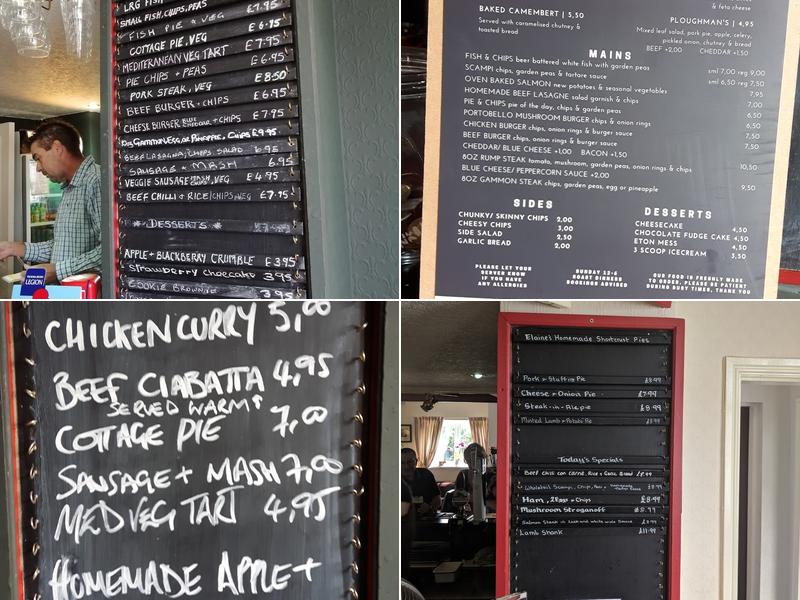 LRG FISH, CHIPS, PEAS £7.95
SMALL FISH, CHIPS, PEAS
FISH PIE & VEG £6.95
COTTAGE PIE, VEG £7.95
MEDITERANIAN VEG TART £6.95
PIE CHIPS + PEAS £8.50
PORK STEAK, VEG £6.95
BEEF BURGER + CHIPS £7.95
CHEESE BURGER CHIPS £7.95
CHIPS £9.95
BEEF LASAGNA, CHIPS SALAD 6.95
SAUSAGE + MASH 6.95
VEGGIE SAUSAGE MASH, VEG £4.95
BEEF CHILLI + RICE/CHIPS, VEG £7.95
* DESSERTS *
APPLE + BLACKBERRY CRUMBLE £3.95
Strawberry cheecake 3.95
COOKIE BROWNIE 3.95
LEGION
& feta cheese
BAKED CAMEMBERT | 5,50
Served with caramelised chutney & toasted bread
PLOUGHMAN'S | 4,95
Mixed leaf salad, pork pie, apple, celery,
pickled onion, chutney & bread
BEEF +2,00 CHEDDAR +1,50
MAINS
FISH & CHIPS beer battered white fish with garden peas sml 7,00 reg 9,00
SCAMPI chips, garden peas & tartare sauce sml 6,50 reg 7,50
OVEN BAKED SALMON new potatoes & seasonal vegetables 7,95
HOMEMADE BEEF LASAGNE salad garnish & chips 7,00
PIE & CHIPS pie of the day, chips & garden peas 6,50
PORTOBELLO MUSHROOM BURGER chips & onion rings 6,50
CHICKEN BURGER chips, onion rings & burger sauce 7,50
BEEF BURGER chips, onion rings & burger sauce 7,50
CHEDDAR/ BLUE CHEESE +1,00 BACON +1,50
8OZ RUMP STEAK tomato, mushroom, garden peas, onion rings & chips 10,50
BLUE CHEESE/ PEPPERCORN SAUCE +2,00
8OZ GAMMON STEAK chips, garden peas, egg or pineapple 9,50
SIDES
CHUNKY/ SKINNY CHIPS 2,00
CHEESY CHIPS 3,00
SIDE SALAD 2,50
GARLIC BREAD 2,00
DESSERTS
CHEESECAKE 4,50
CHOCOLATE FUDGE CAKE 4,50
ETON MESS 4,50
3 SCOOP ICECREAM 3,50
PLEASE LET YOUR
SERVER KNOW
IF YOU HAVE
ANY ALLERGIES
SUNDAY 12-6
ROAST DINNERS
BOOKINGS ADVISED
OUR FOOD IS FRESHLY MADE
TO ORDER, PLEASE BE PATIENT
DURING BUSY TIMES, THANK YOU
CHICKEN CURRY 5,00
BEEF CIABATTA 4,95
SERVED WARM
COTTAGE PIE 7,00
SAUSAGE + MASH 7,00
MED VEG TART 4,95
HOMEMADE APPLE +
Elaine's Homemade Shortcrust Pies
Pork & Stuffing Pie £8.99
Cheese & Onion Pie £7.99
Steak-in-Ale pie £8.99
Minted Lamb & Potato Pie £8.99
Today's Specials
Beef chilli con carne, Rice & Garlic Bread £8.99
Wholetail Scampi, Chips, Peas & £8.99
Ham, 2 Eggs & Chips £8.99
Mushroom Stroganoff £8.99
Salmon Steak in Leek and white wine Sauce £8.99
Lamb Shank £11.99